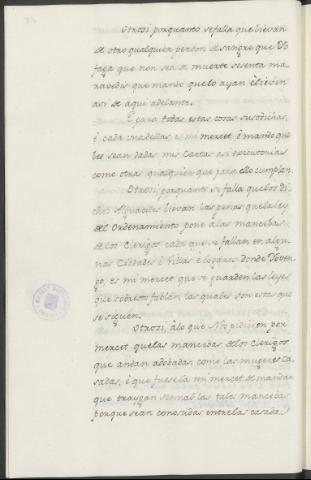 Otrosi porquanto se falla que lievan
de otro qualquier perdon de sangre que Yo
faga que non sea de muerte sesenta ma-
ravedis que mando que lo ayan e lieven
asi de aqui adelante.
E para todas estas cosas susodichas,
e cada una dellas es mi mercet, e mando que
les sean dadas mis Cartas asi executorias
como otras qualesquier que para ello cumplan.
Otrosi, porquanto se falla que los di-
chos Alguaciles lievan las penas que la ley
del Ordenamiento pone a las mancebas
de los Clerigos cada que se fallan en algu-
nas Cibdades e Villas e logares donde Yo ven-
go, es mi mercet que se guarden las leyes
que sobresto fablan, las quales son estas que
se siguen.
Otrosi, a lo que Nos pidieron por
mercet que las mancebas de los Clerigos
que andan adobadas, como las mugeres Ca-
sadas, e que fuese la mi mercet de mandar
que traygan sennal las tales mancebas
porque sean conoscidas entre las casadas.